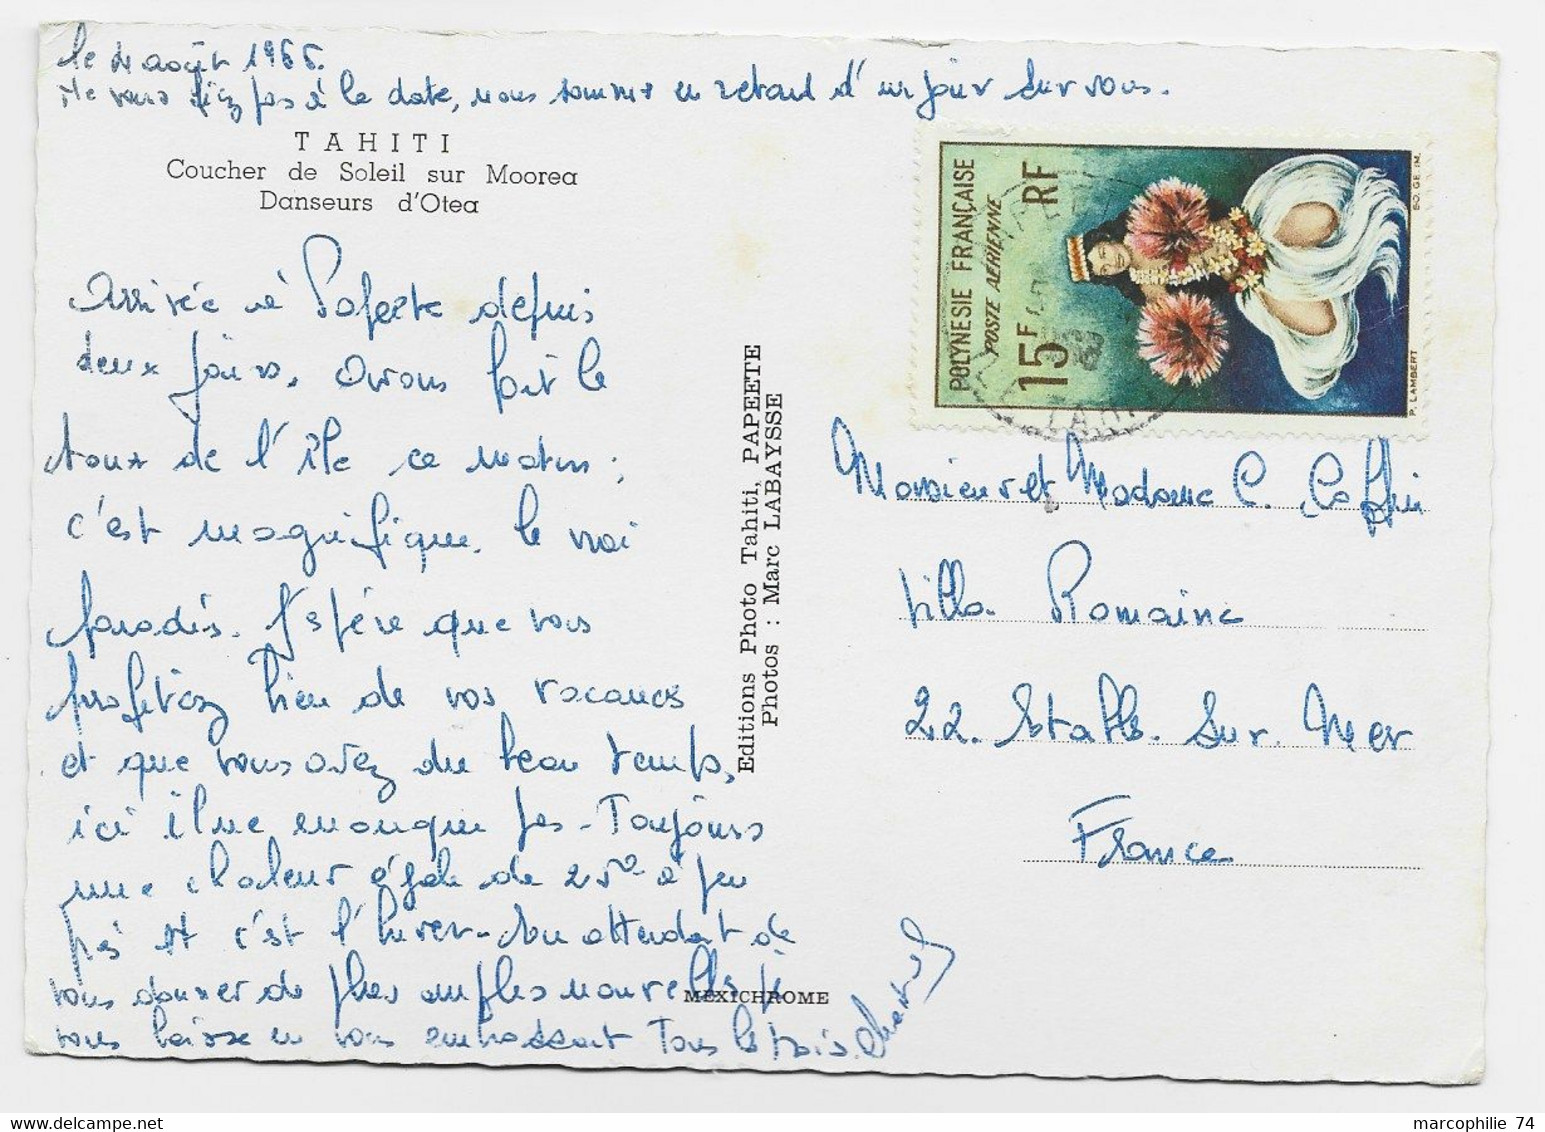 le 4 août 1966.
Ne vous fiez pas à la date, nous sommes en retard d'un jour sur vous.
TAHITI
Coucher de Soleil sur Moorea
Danseurs d'Otea
Arrivée à Papeete depuis
deux jours, avons fait le
tour de l'île ce matin ;
c'est magnifique, le vrai
paradis. J'espère que vous
profitez bien de vos vacances
et que vous avez du beau temps,
ici il ne manque pas - Toujours
une chaleur égale de 25° à peu
près et c'est l'hiver - En attendant de
vous donner de plus amples nouvelles je
vous laisse en vous embrassant Tous les trois.
Editions Photo Tahiti, PAPEETE
Photos : Marc LABAYSSE
MEXICHROME
POLYNESIE FRANÇAISE
POSTE AERIENNE
15F RF
P. LAMBERT
SO. GE. IM.
Monsieur et Madame C.
Villa Romaine
22. Etables. Sur. Mer
France
marcophilie 74